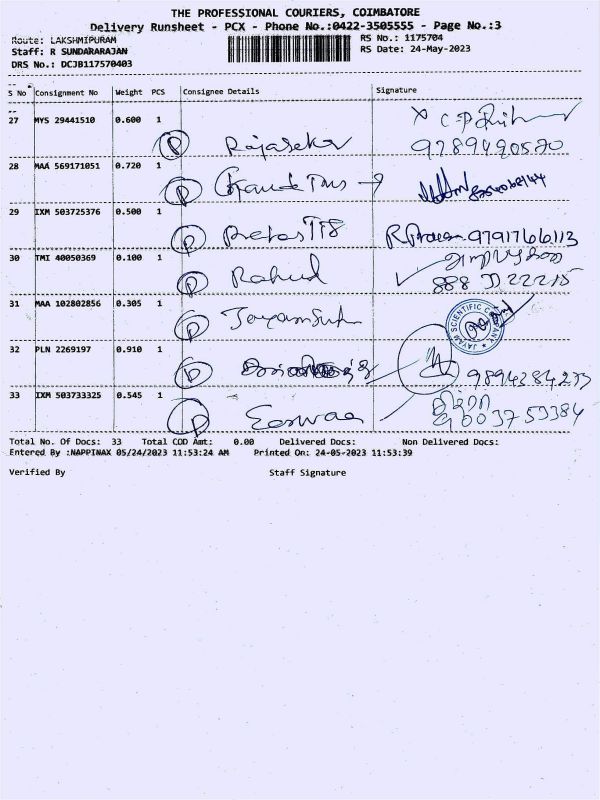 THE PROFESSIONAL COURIERS, COIMBATORE
Delivery Runsheet - PCX - Phone No.:0422-3505555 - Page No.:3
Route: LAKSHMIPURAM RS No.: 1175704
Staff: R SUNDARARAJAN RS Date: 24-May-2023
DRS No.: DCJB117570403
S No Consignment No Weight PCS Consignee Details Signature
27 MYS 29441510 0.600 1 P Rajasekar
9789490580
28 MAA 569171051 0.720 1 P
29 IXM 503725376 0.500 1 P 9791766113
30 TMI 40050369 0.100 1 P Rahul
888 22215
31 MAA 102802856 0.305 1 P
JAYAM SCIENTIFIC COMPANY
32 PLN 2269197 0.910 1 P 9894384233
33 IXM 503733325 0.545 1 P Eswaa
Total No. Of Docs: 33 Total COD Amt: 0.00 Delivered Docs: Non Delivered Docs:
Entered By :NAPPINAX 05/24/2023 11:53:24 AM Printed On: 24-05-2023 11:53:39
Verified By Staff Signature